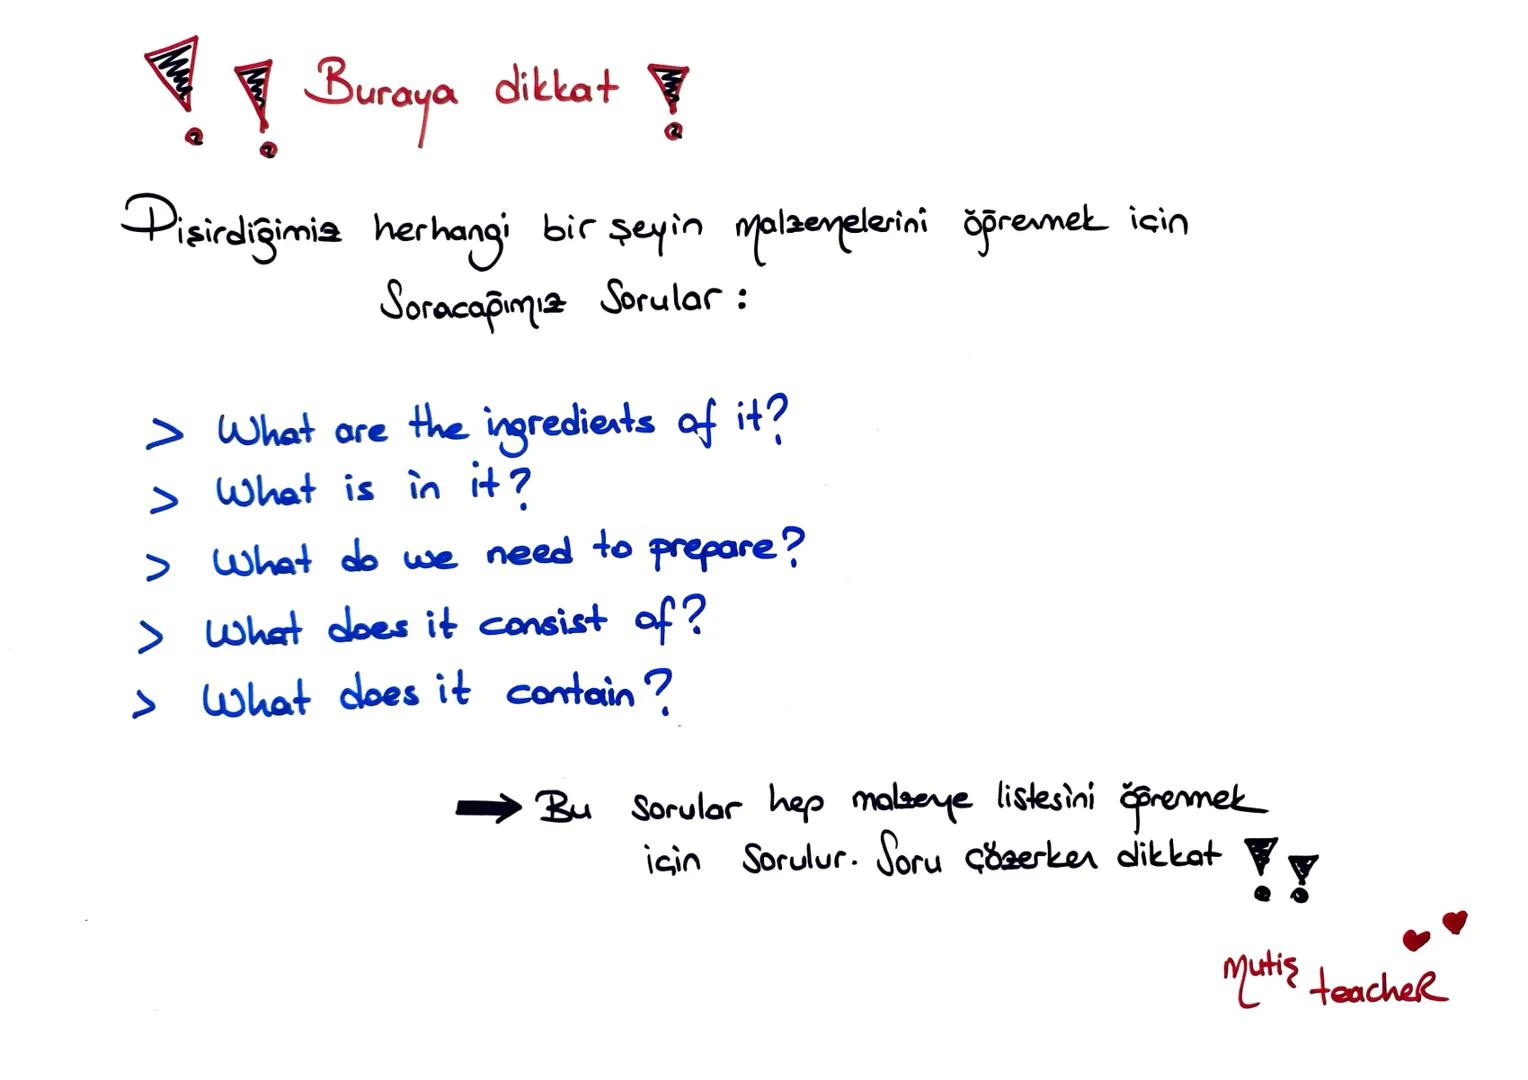 !! Buraya dikkat !
Pişirdiğimiz herhangi bir şeyin malzemelerini öğrenmek için
Soracağımız Sorular :
> What are the ingredients of it?
> What is in it?
> What do we need to prepare?
> What does it consist of?
> What does it contain?
→ Bu sorular hep malzeme listesini öğrenmek
için Sorulur. Soru çözerken dikkat !!
Mutiş teacheR